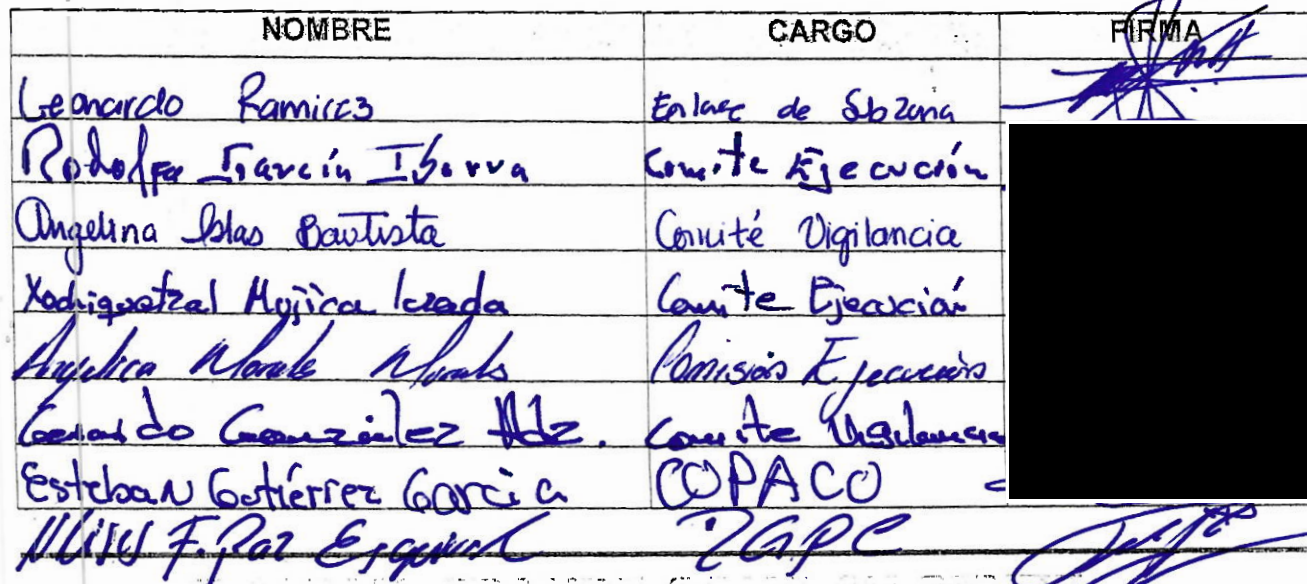 NOMBRE CARGO FIRMA
Leonardo Ramirez Enlace de Subzona
Rodolfo García Ibarra Comite Ejecución
Angelina Islas Bautista Comité Vigilancia
Xochiquetzal Mojica Comite Ejecución
Angelica Morales Morales Comisión Ejecución
Gerardo González Hdz. Comite Vigilancia
Esteban Gutiérrez Garcia COPACO
F. Paz Esquivel DGPC